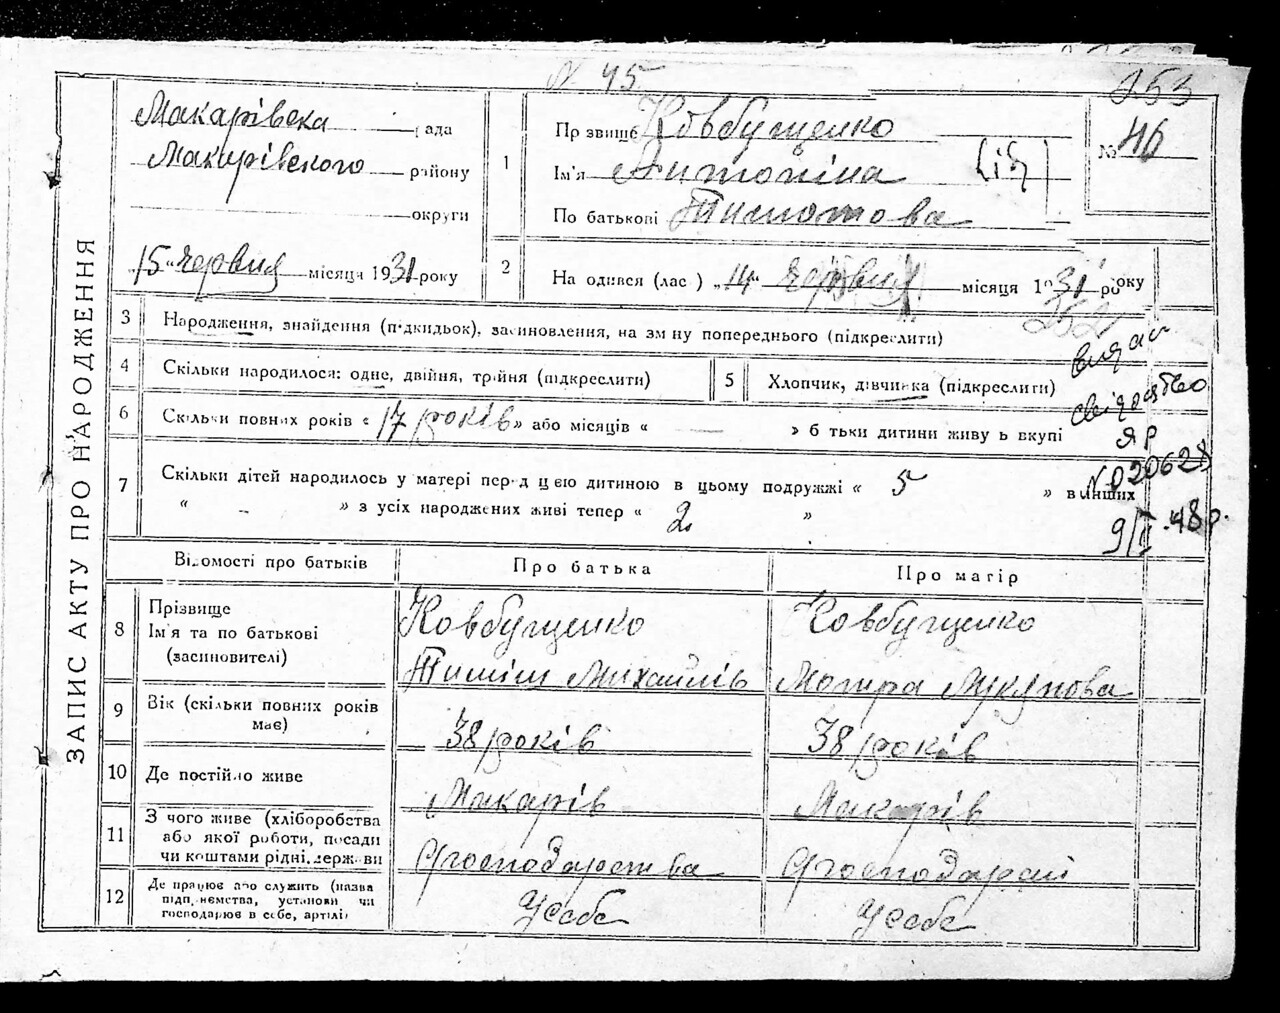 N 45
253
ЗАПИС АКТУ ПРО НАРОДЖЕННЯ
Макарівска рада
Макарівского району
округи
„15“ червня місяця 1931 року
1
Прізвище Ковбущенко
Ім'я Антоніна
По батькові Тимошова
№ 46
2
На одився (лас ) „14“ червня місяця 1931 року
3 Народження, знайдення (підкидьок), засиновлення, на зм ну попереднього (підкреслити)
4 Скільки народилося: одне, двійня, трійня (підкреслити)
5 Хлопчик, дівчинка (підкреслити)
6 Скільки повних років « 17 років » або місяців « — » б тьки дитини живу ь вкупі
7 Скільки дітей народилось у матері перед цією дитиною в цьому подружжі « 5 » в инших
« » з усіх народжених живі тепер « 2 »
видано
свідоцтво
ЯР
N 020628
9/I 48 р.
Відомості про батьків Про батька Про матір
8 Прізвище
Ім'я та по батькові
(засиновителі)
Ковбущенко
Тиміш Михайлів
Ковбущенко
Мотира Лукянова
9 Вік (скільки повних років
має)
38 років
38 років
10 Де постійно живе
Макарів
Макарів
11 З чого живе (хліборобства
або якої роботи, посади
чи коштами рідні, держави
господарства
господарст
12 Де працює або служить (назва
підприємства, установи чи
господарює в себе, артілі)
У себе
У себе